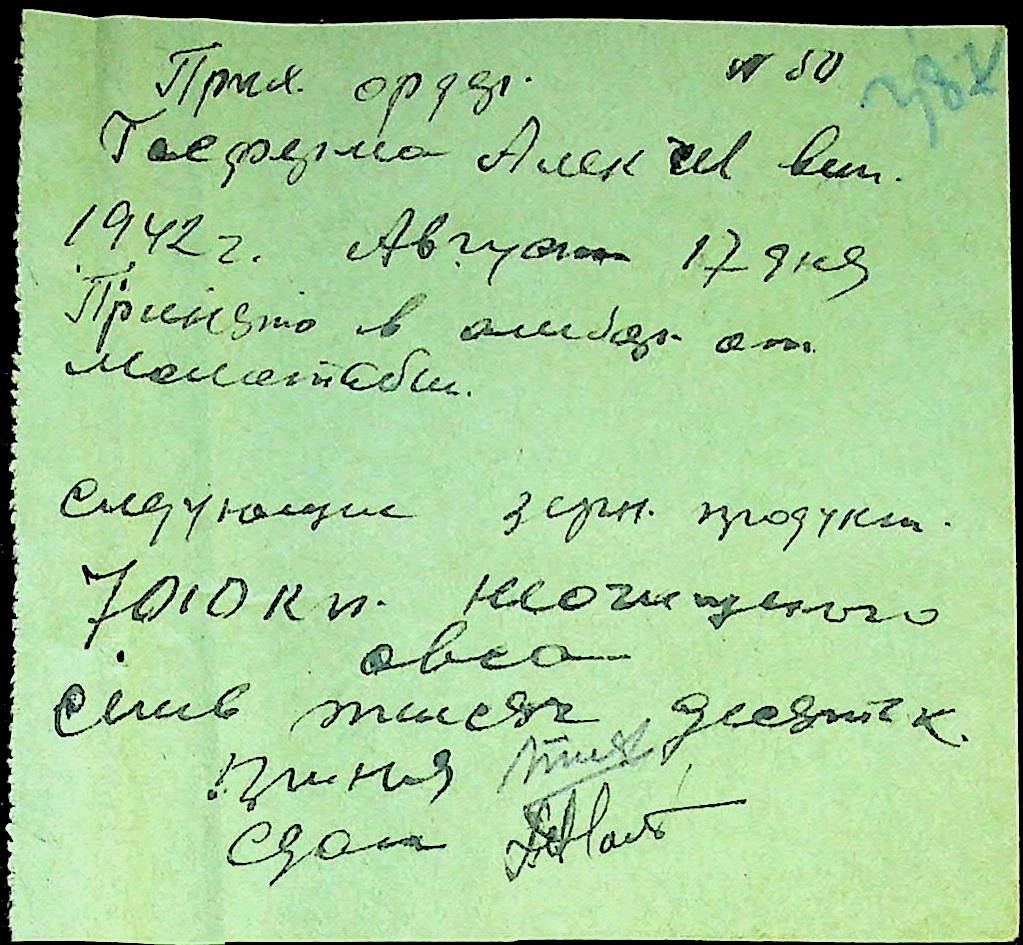 Прих. ордер. № 50
387
Алек
1942 г. Август 17 дня
Принято в амбар от
молотьбы.
следующие зерн. продукт.
7010 кг. неочищеного
овса
семь тысяч десять к.
Принял
Сдал